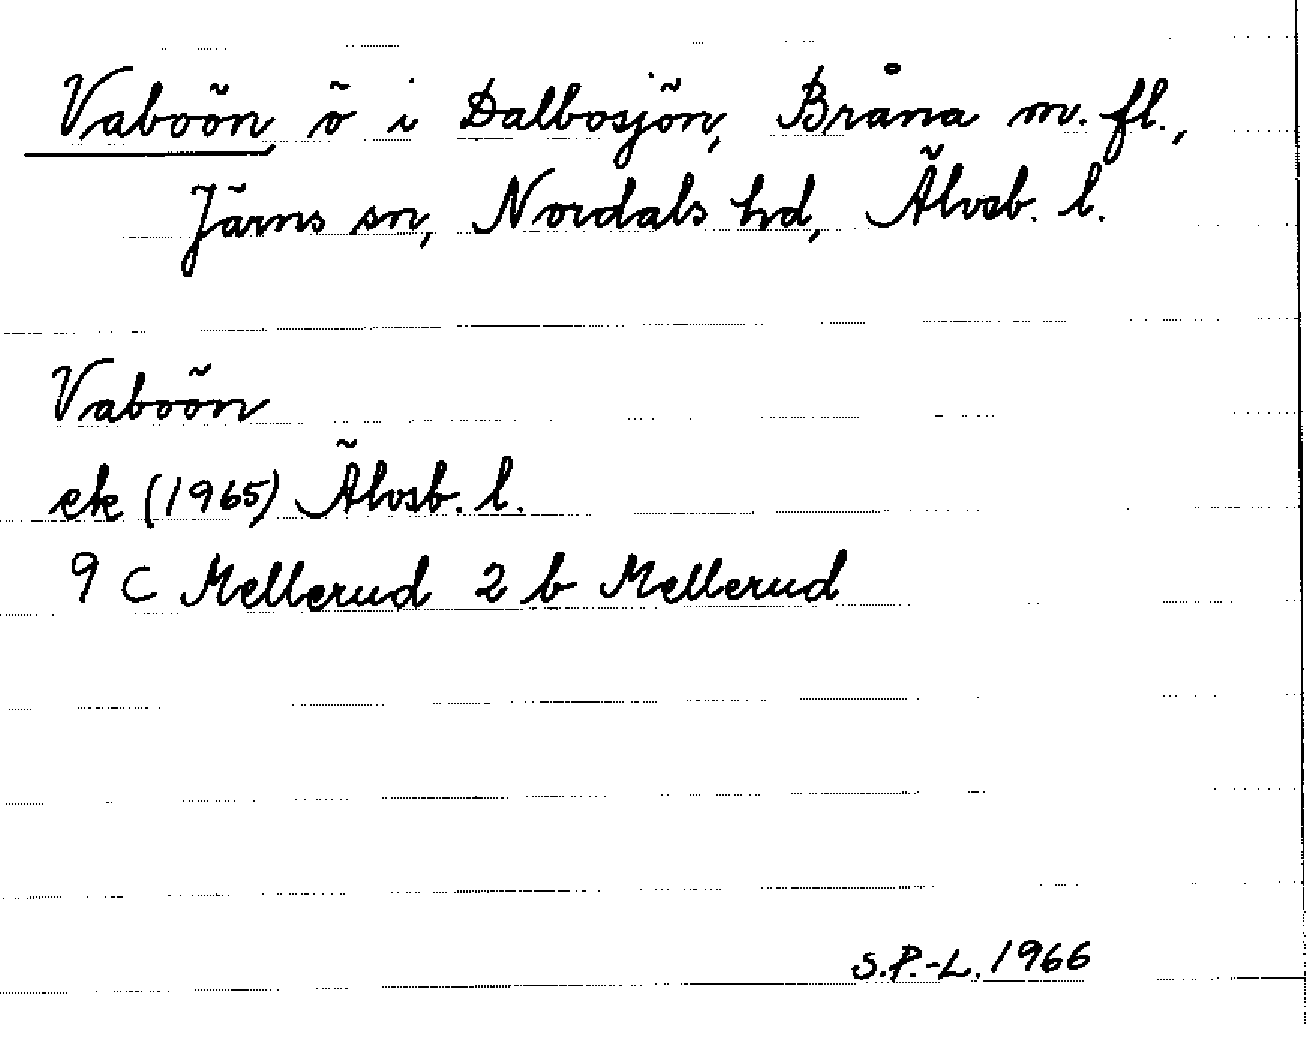 Vaboön, ö i Dalbosjön, Bråna m. fl.,
Järns sn, Nordals hd, Älvsb. l.
Vaboön
ek (1965) Älvsb. l.
9 C Mellerud 2 b Mellerud
S.P.-L. 1966